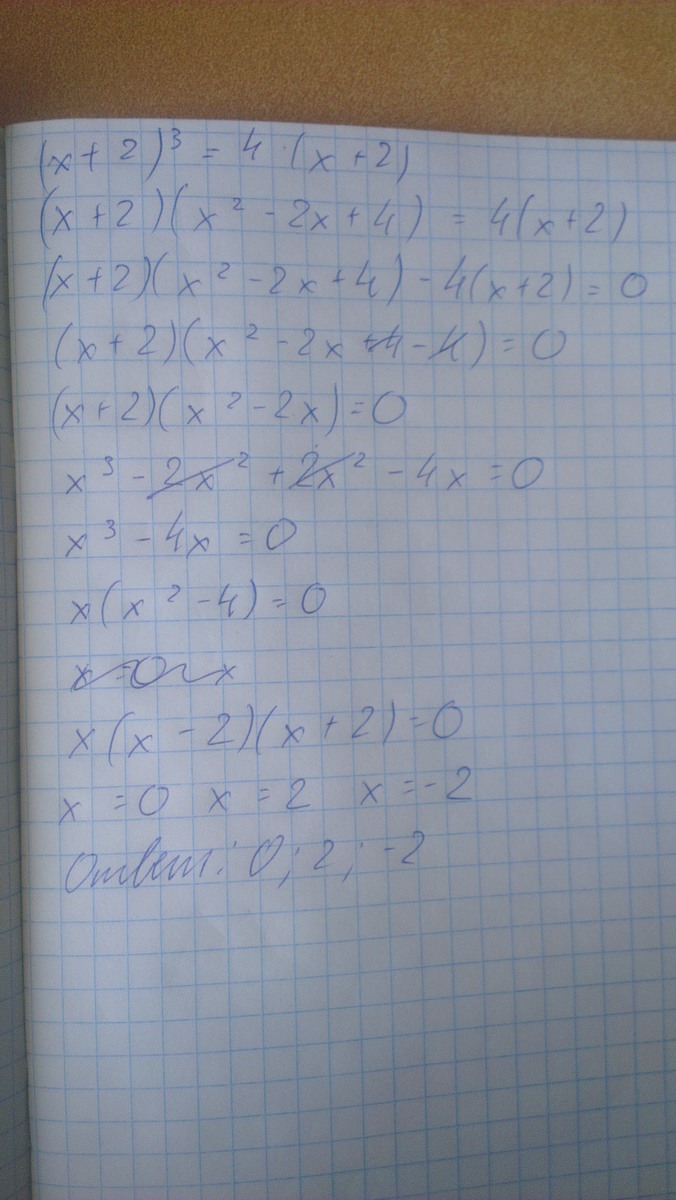 (x+2)³ = 4·(x+2)
(x+2)(x²-2x+4) = 4(x+2)
(x+2)(x²-2x+4)-4(x+2)=0
(x+2)(x²-2x+4-4)=0
(x+2)(x²-2x)=0
x³-2x²+2x²-4x=0
x³-4x=0
x(x²-4)=0
x=0 x
x(x-2)(x+2)=0
x=0 x=2 x=-2
Ответ: 0; 2; -2